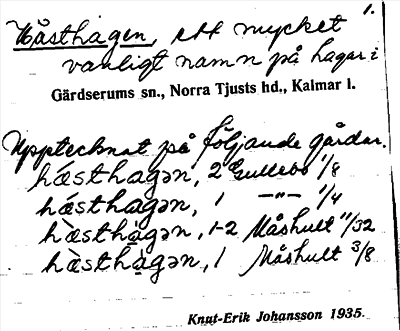 1.
Hästhagen, ett mycket
vanligt namn på hagar i
Gärdserums sn., Norra Tjusts hd., Kalmar l.
Upptecknat på följande gårdar.
hǽsthagən, 2 Gullebo 1/8
hǽsthagən, 1 —"— 1/4
hæ̀sthạ̀gən, 1-2 Måshult 11/32
hæ̀sthạ̀gən, 1 Måshult 3/8
Knut-Erik Johansson 1935.